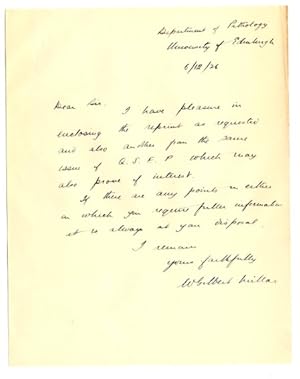 Department of Pathology
University of Edinburgh
6/12/26
Dear Sir. I have pleasure in
enclosing the reprint as requested
and also another from the same
issue of Q.J.E.P. which may
also prove of interest.
If there are any points in either
on which you require further information
it is always at your disposal.
I remain
yours faithfully
W Gilbert Millar